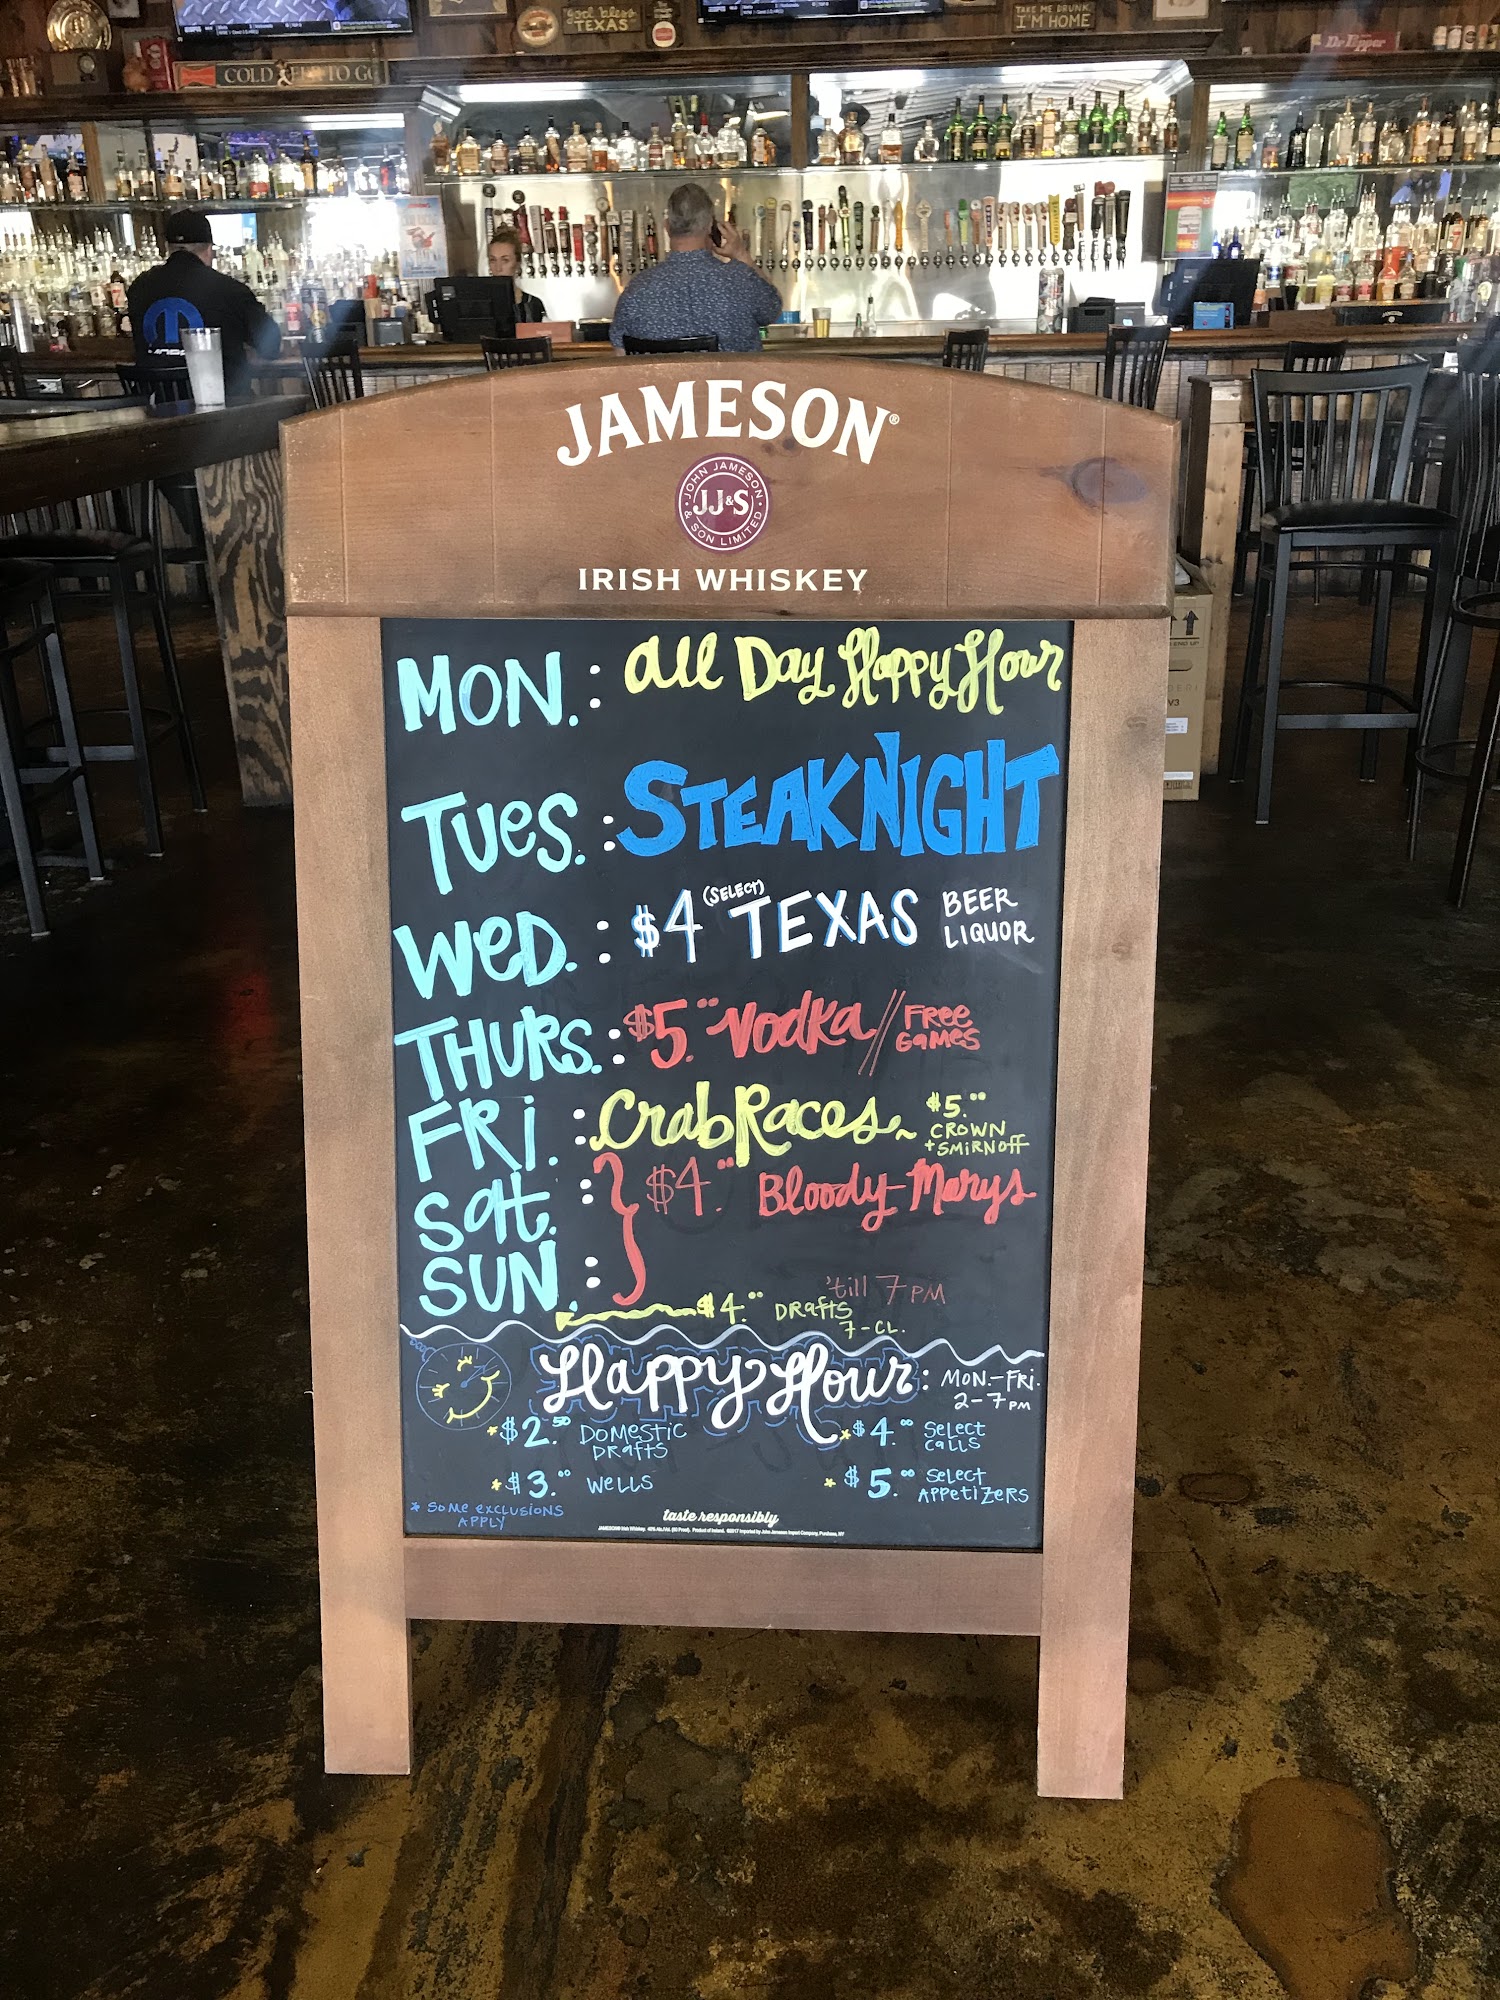 god bless
TEXAS
TAKE ME DRUNK
I'M HOME
Dr Pepper
COLD BEER TO GO
JAMESON®
JOHN JAMESON
JJ&S
& SON LIMITED
IRISH WHISKEY
MON.: all Day Happy Hour
TUES.: STEAK NIGHT
WED.: $4 (SELECT) TEXAS BEER LIQUOR
THURS.: $5.00 Vodka // FREE GAMES
FRI.: Crab Races ~ $5.00 CROWN + SMIRNOFF
Sat.: } $4.00 Bloody Marys
SUN.: 'till 7 PM
$4.00 DRAFTS
7-CL.
Happy Hour: MON.-FRI.
2-7 PM
*$2.50 DOMESTIC DRAFTS
*$4.00 SELECT CALLS
*$3.00 WELLS
*$5.00 SELECT APPETIZERS
* SOME EXCLUSIONS APPLY
taste responsibly